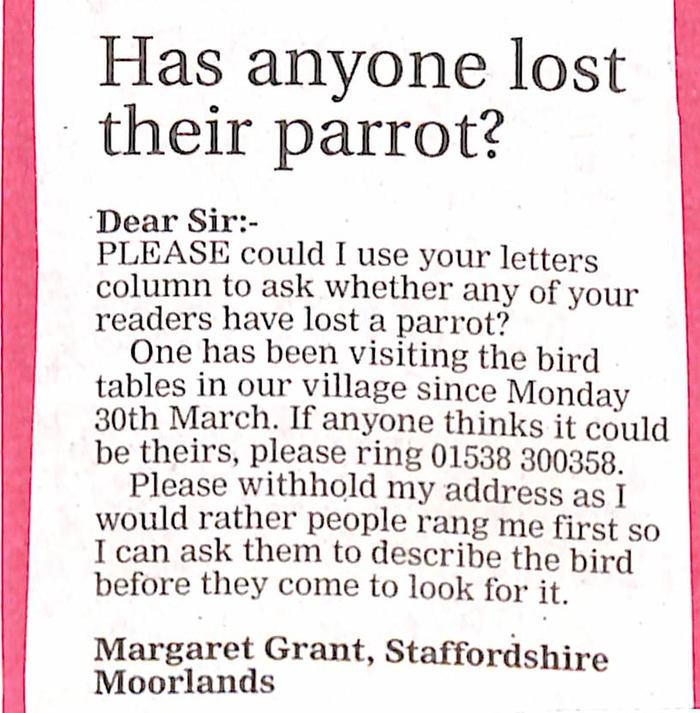 Has anyone lost
their parrot?
Dear Sir:-
PLEASE could I use your letters
column to ask whether any of your
readers have lost a parrot?
One has been visiting the bird
tables in our village since Monday
30th March. If anyone thinks it could
be theirs, please ring 01538 300358.
Please withhold my address as I
would rather people rang me first so
I can ask them to describe the bird
before they come to look for it.
Margaret Grant, Staffordshire
Moorlands